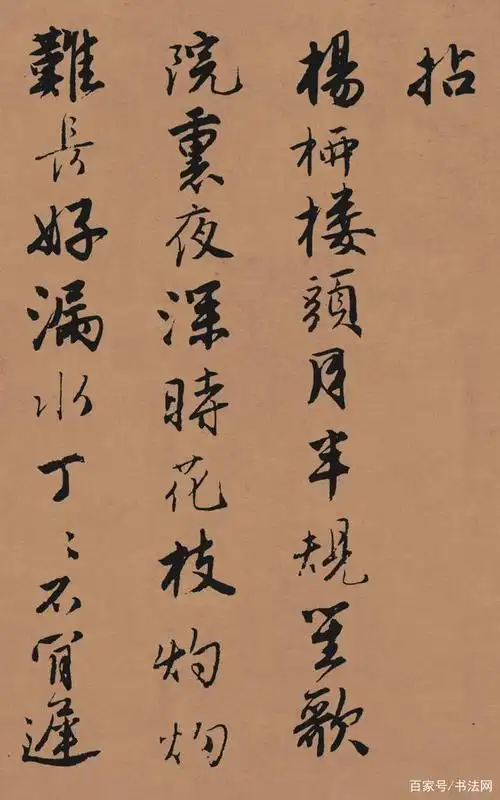 拈
楊柳樓頭月半規笙歌
院裏夜深時花枝灼灼
難長好漏水丁〻不肯遲
百家号/书法网